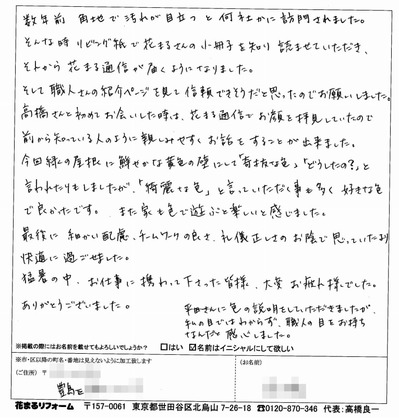 数年前 角地で汚れが目立つと何社かに訪問されました。
そんな時リビング紙で花まるさんの小冊子を知り読ませていただき、
それから花まる通信が届くようになりました。
そして職人さんの紹介ページを見て信頼できそうだと思ったのでお願いしました。
高橋さんと初めてお会いした時は、花まる通信でお顔を拝見していたので
前から知っている人のように親しみやすくお話をすることが出来ました。
今回緑の屋根に鮮やかな黄色の壁にして「奇抜な色」「どうしたの?」と
言われたりもしましたが、「綺麗な色」と言っていただく事も多く好きな色
で良かったです。また家も色で遊ぶと楽しいと感じました。
最後に細かい配慮、チームワークの良さ、礼儀正しさのお陰で思っていたより
快適に過ごせました。
猛暑の中、お仕事に携わって下さった皆様、大変お疲れ様でした。
ありがとうございました。
平田さんに色の説明もしていただきましたが、
私の目ではわからず、職人の目をお持ち
なんだと感心しました。
※掲載の際にはお名前を載せてもよろしいでしょうか? □はい ☑名前はイニシャルにして欲しい
※市・区以降の町名・番地は見えないように加工致します
(ご住所) 〒
(お名前)
豊島区
花まるリフォーム 〒157-0061 東京都世田谷区北烏山7-26-18 ☎0120-870-346 代表:高橋良一